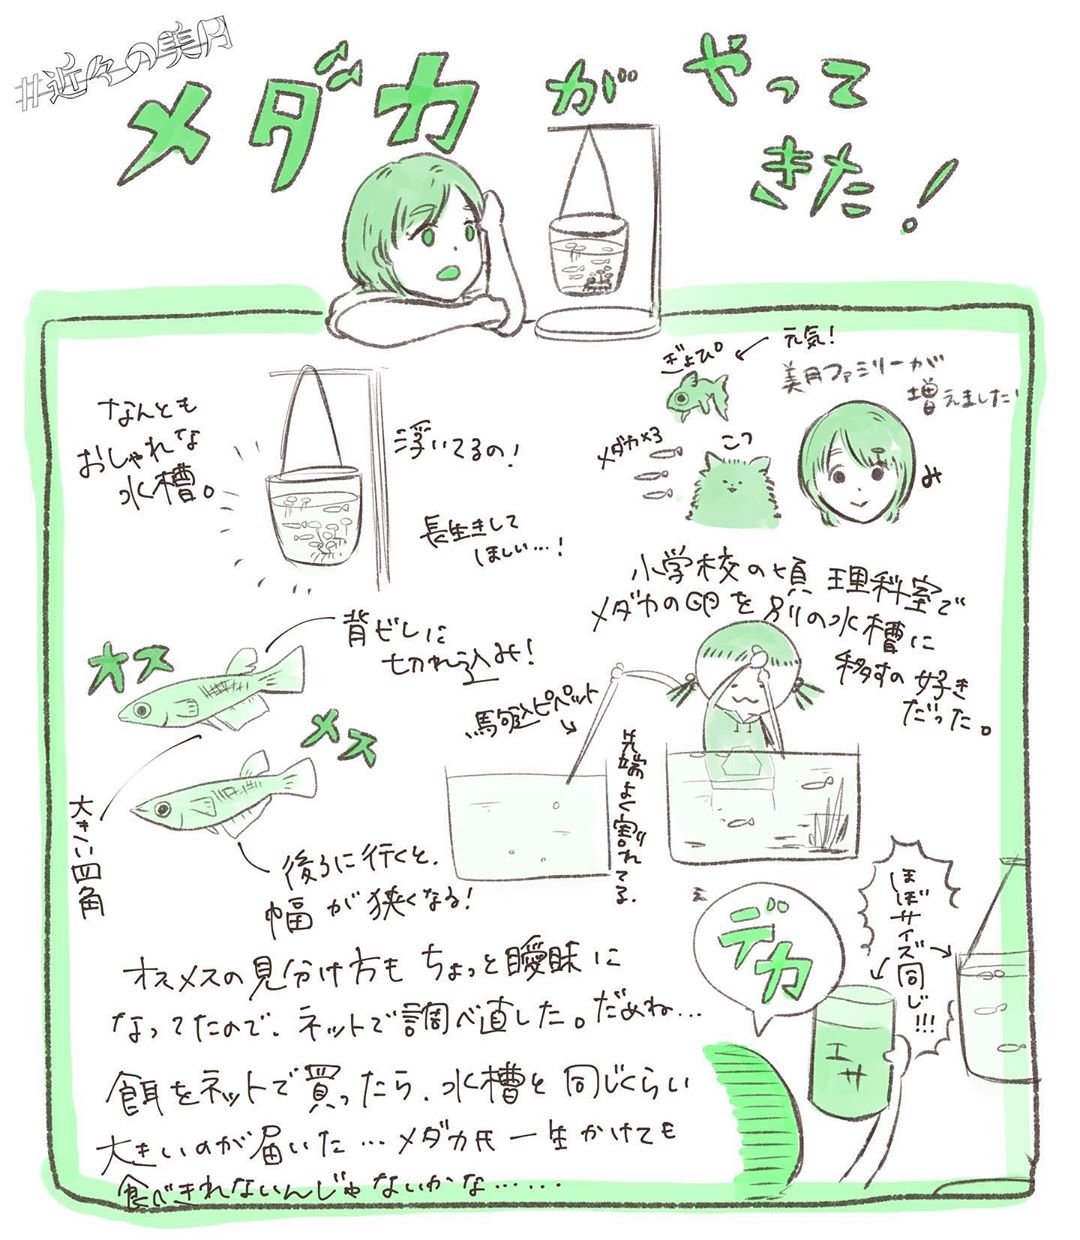 #近々の美月
メダカが やって
きた！
なんとも
おしゃれな
水槽。
浮いてるの！
長生きして
ほしい…！
ぎょぴ
元気！
美月ファミリーが
増えました！
メダカ×3
こつ
み
小学校の頃 理科室で
メダカの卵を別の水槽に
移すの好き
だった。
駒込ピペット
先端よく割れてる。
オス
背ビレに
切れ込み！
メス
大きい四角
後ろに行くと、
幅が狭くなる！
オスメスの見分け方もちょっと曖昧に
なってたので、ネットで調べ直した。だめね…
餌をネットで買ったら、水槽と同じくらい
大きいのが届いた…メダカ氏一生かけても
食べきれないんじゃないかな……
デカ
ほぼサイズ同じ!!!
エサ